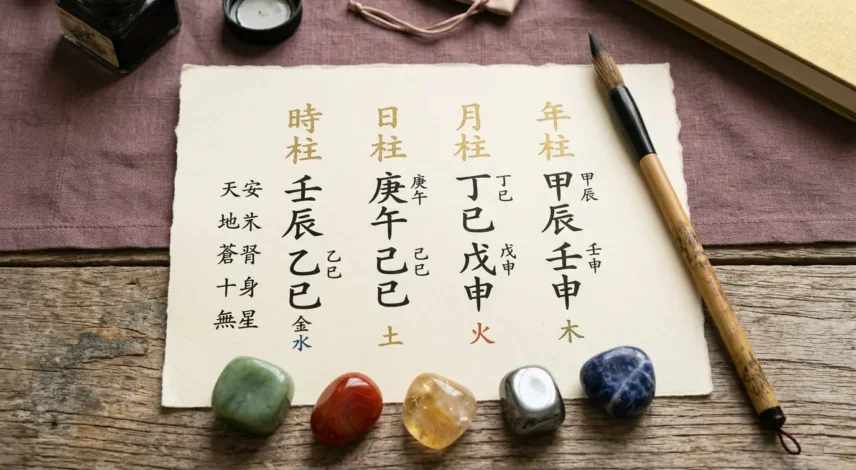 年柱
甲辰
甲辰
壬申
壬申
木
月柱
丁巳
丁巳
戊申
戊申
火
日柱
庚午
庚午
己巳
己巳
土
時柱
壬辰
乙巳
乙巳
金
水
安
腎身星
天地蒼十無